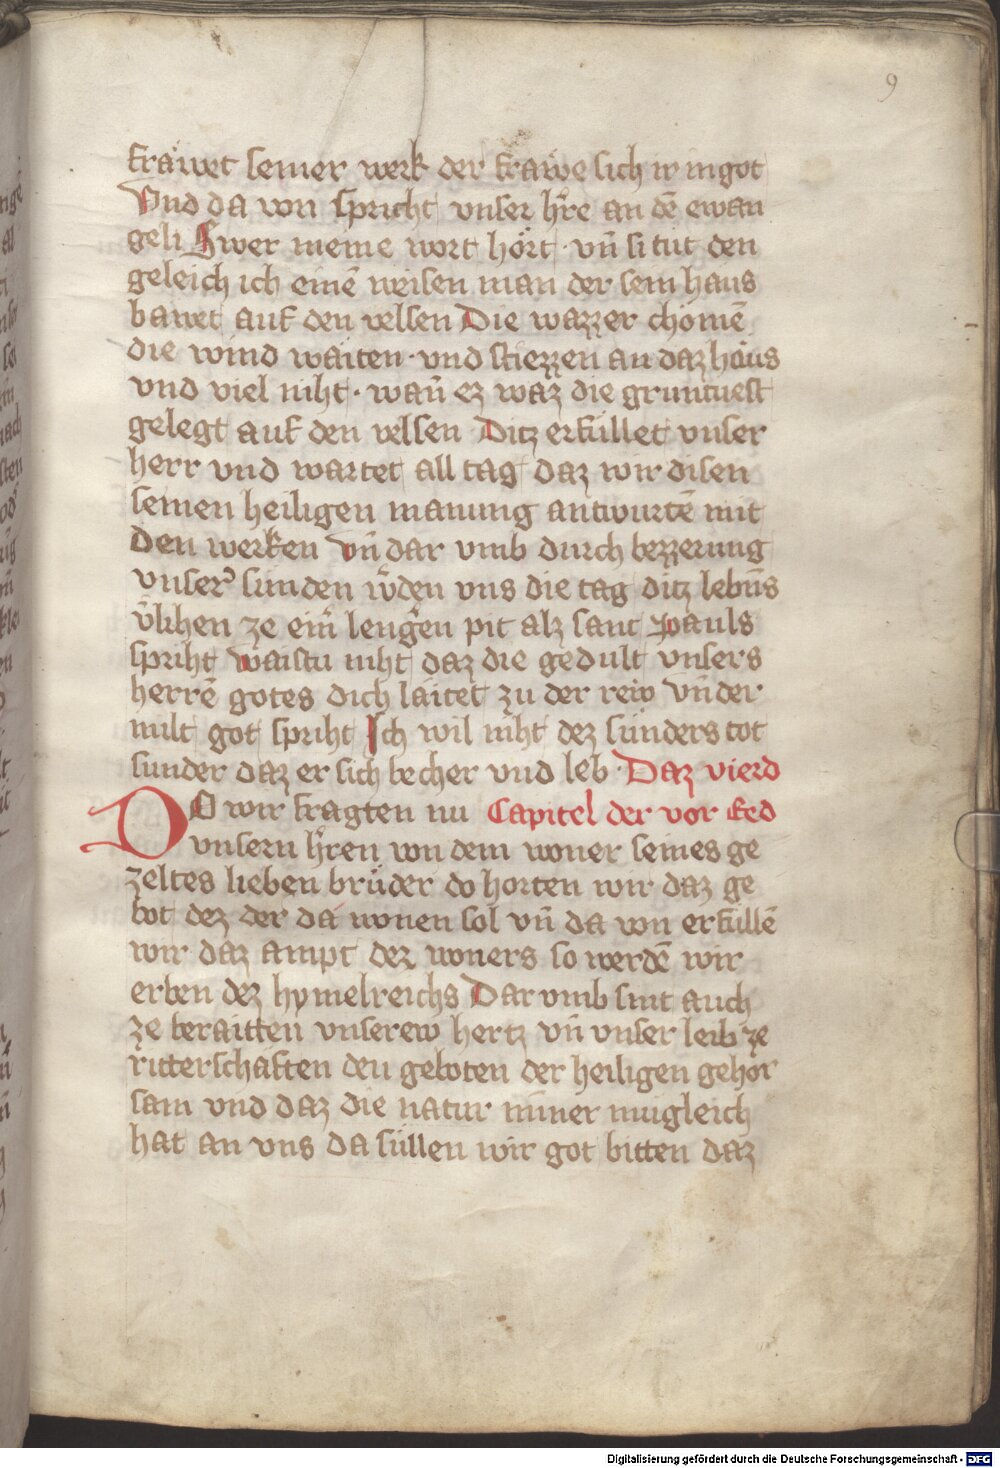 9
frawet seiner werk der frawe sich ır in got
Vnd da von spricht vnser hr̄e an dē ewan
geli Swer meine wort hört · vn̄ si tut den
geleich ich einē weisen man der sein haus
bawet auf den velsen Die wazzer chomē
die wind waiten · vnd stiezzen an daz haus
vnd viel niht · wan̄ ez waz die gruntvest
gelegt auf den velsen Ditz erfüllet vnser
herr vnd wartet all tag daz wir disen
seinen heiligen manung antwurtē mit
den werken vn̄ dar vmb durch bezzerung
vnser᾽ sünden w̄den vns die tag ditz lebn̄s
v̄lihen ze ein̄ lenḡen pit alz sant Pauls
spriht waistu niht daz die gedult vnsers
herrē gotes dich läitet zu der reiw vn̄ der
milt got spriht Ich wil niht dez sünders tot
sunder daz er sich becher vnd leb · Daz vierd
DO wir fragten nu Capitel der vor Red
vnsern hr̄en von dem woner seines ge
zeltes lieben brüder do horten wir daz ge
bot dez der da wonen sol vn̄ da von erfüllē
wir daz ampt dez woners so werdē wir
erben dez hymelreichs Dar vmb sint auch
ze beraitten vnserew hertz vn̄ vnser leib ze
ritterschaften den geboten der heiligen gehor
sam vnd daz die natur minner mugleich
hat an vns da süllen wir got bitten daz
Digitalisierung gefördert durch die Deutsche Forschungsgemeinschaft - DFG